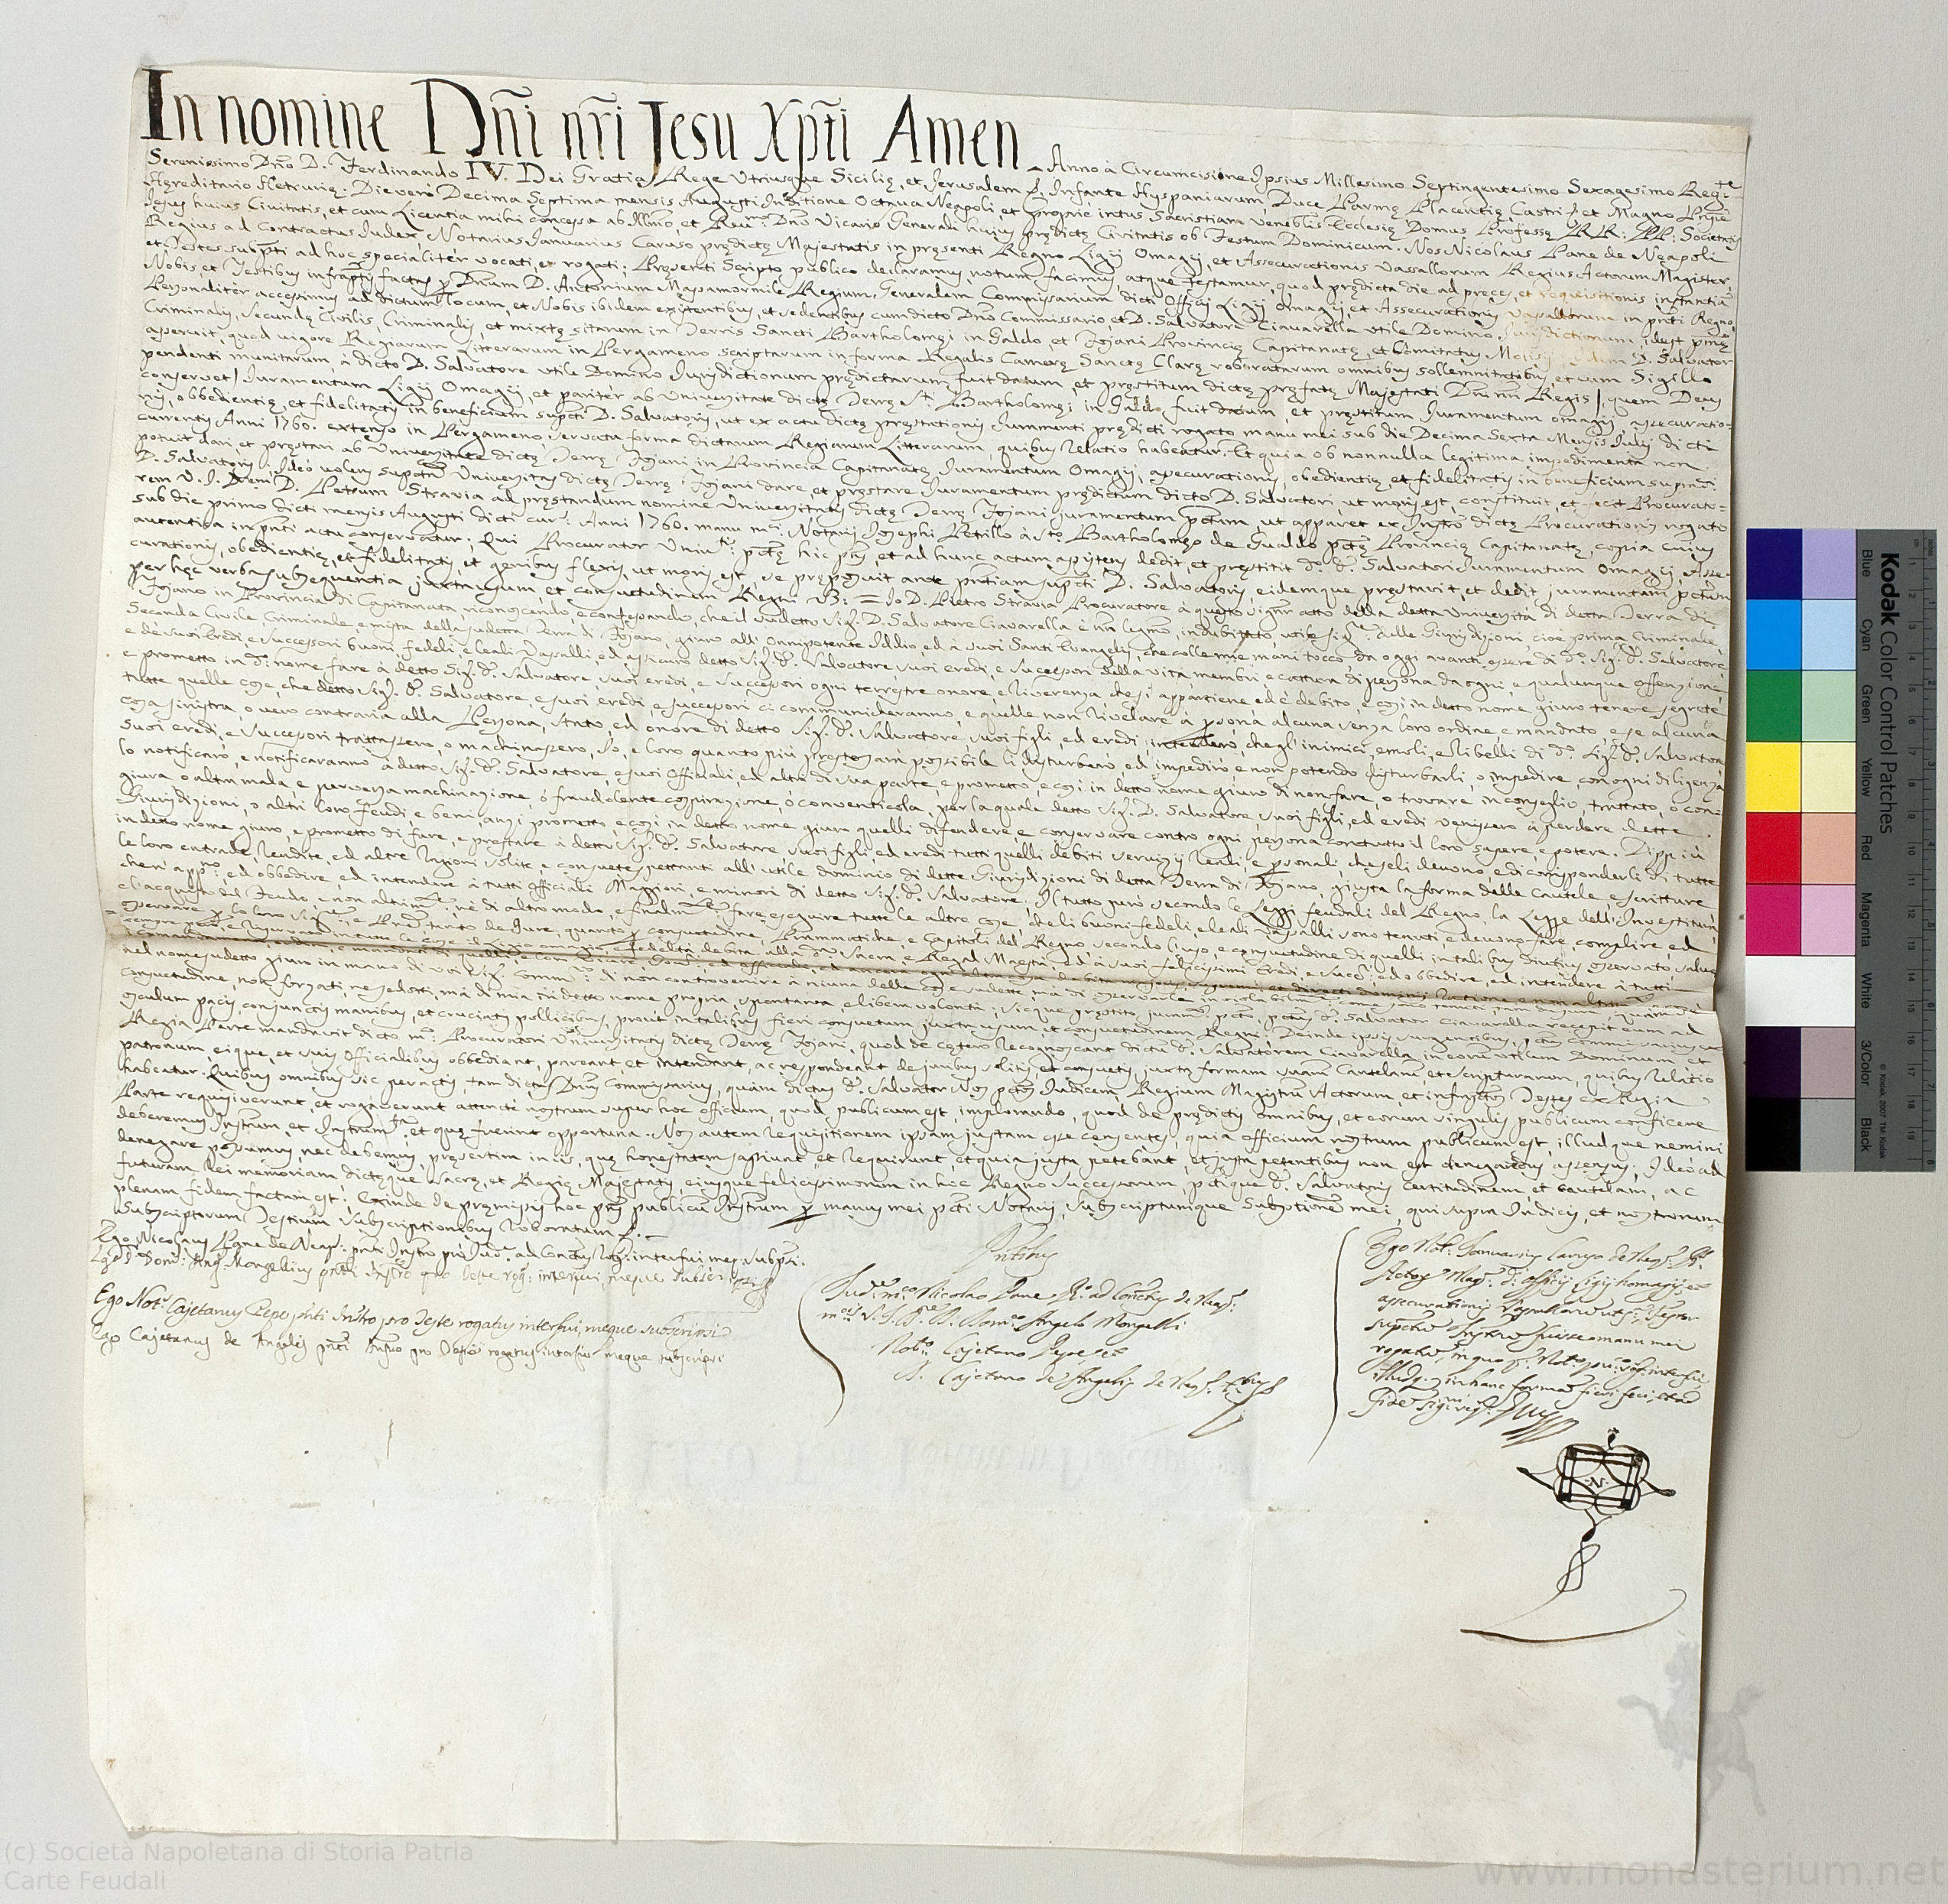 In nomine Dn̄i nr̄i Jesu Xpti Amen
Anno à Circumcisione Ipsius Millesimo Septingentesimo Sexagesimo Reg:te
Serenissimo Dno D. Ferdinando IV. Dei Gratia Rege Utriusque Sicilię, et Jerusalem &, Infante Hyspaniarum, Duce Parmę Placentię Castri & et Magno Prñpe
Hęreditario Hetrurię. Die verò Decima Septima mensis Augusti Inditione Octava Neapoli, et proprie intus Sacristiam Venebilis Ecclesię Domus Professę RR: PP: Societatis
Jesus huius Civitatis, et cum Licentia mihi concessa ab Illmo, et Revmo Dno Vicario Generali hujus prędictę Civitatis ob Festum Dominicum. Nos Nicolaus Pane de Neapoli
Regius ad Contractus Judex, Notarius Januarius Caruso prędictę Majestatis in pręsenti Regno Ligij Omagij, et Assecurationis Vassallorum Regius Actorum Magister,
et Testes subpti ad hoc specialiter vocati, et rogati; Pręsenti Scripto publico declaramus, notum facimus, atque testamur, quod prędicta die ad preces, et requisitionis instantiā
Nobis, et Testibus infraptis factas p Dnum D. Antonium Mazamormile Regium Generalem Commissarium dicti Officij Ligij Omagij, et Assecurationis Vassallorum in pnti Regno,
Personaliter accessimus ad dictum locum, et Nobis ibidem existentibus, et sedentibus cum dicto Dno Commissario, et D. Salvatore Ciavarella utile Domino Jurisdictionum, idest primę
Criminalis, Secundę Civilis, Criminalis, et mixtę sitarum in Terris Sancti Bartholomęi in Galdo, et Fojani Provincię Capitanatę, et Comitatus Molisij. Idem D. Salvator
asseruit, quod vigore Regiarum Litterarum in Pergameno scriptarum in forma Regalis Camerę Sanctę Clarę roboratarum omnibus sollemnitatibus, et cum Sigillo
pendenti munitarum, à dicto D. Salvatore utile Domino Jurisdictionum prędictarum fuit datum, et pręstitum dictę pręfatę Majestati Dni nri Regis / quem Deus
conservet / Juramentum Ligij Omagij, et pariter ab Universitate dictę Terrę Sti Bartholomęi in Galdo fuit datum, et pręstitum Juramentum omagij, assecuratio=
nis, obbedientię, et fidelitatis in beneficium supcti D. Salvatoris, ut ex actu dictę pręstationis Juramenti prędicti rogato manu mei sub die Decima Sexta Mensis Julij dicti
currentis Anni 1760. extenso in Pergameno, servata forma dictarum Regiarum Litterarum, quibus relatio habeatur. Et quia ob nonnulla legitima impedimenta non
potuit dari, et pręstari ab Universitate dictę Terrę Fojani in Provincia Capitanatę Juramentum Omagij, assecurationis, obedientię, et fidelitatis in beneficium supradi
D. Salvatoris; Ideo volens supotā Universitas dictę Terrę Fojani dare, et pręstare Juramentum prędictum dicto D. Salvatori, ut moris est, constituit, et fecit Procurato=
rem U. J. D. D. Petrum Stravia ad pręstandum nomine Universitatis dictę Terrę Fojani juramentum pctum, ut apparet ex Instro dictę Procurationis rogato
sub die primo dicti mensis Augusti dicti cur: Anni 1760. manu mci Notarij Josephi Petrillo à Sto Bartholomęo de Gualdo pctę Provincię Capitanatę, copia cuius
autentica in pnti actu conservatur; Qui Procurator Univtis pctę hic pns, et ad hunc actum assistens dedit, et pręstitit dto D. Salvatori Juramentum Omagij, Asse=
curationis, obedientię, et fidelitatis, et genibus flexis, ut moris est, se pręposuit ante pntiam supcti D. Salvatoris, eidemque pręstavit, et dedit juramentum pctum
per hęc verba subsequentia juxta usum, et consuetudinem Regni V3: = Io D. Pietro Stravia Procuratore à questo signr atto della detta Università di detta Terra di
Fojano in Provincia di Capitanata, riconoscendo, e confessando, che il sudetto Sig. D. Salvatore Ciavarella è un legmo, indubitato, utile Sigre delle Giurisdizioni, cioè prima Criminale,
Seconda Civile, Criminale, e mista della sudetta Terra di Fojano, giuro all'Onnipotente Iddio, ed à suoi Santi Evangelij, che colle mie mani tocco, da oggi avanti essere di dto Sig. D. Salvatore
e de suoi Eredi, e successori buoni, fedeli, e leali Vassalli, ed assicuro detto Sig. D. Salvatore, suoi eredi, e successori della vita membri e cattura di persona da ogni, e qualunque offenzione
e prometto in dto nome fare à detto Sig. D. Salvatore, suoi eredi, e successori ogni terrestre onore, e riverenza, che si appartiene ed è debito, e così in detto nome giuro tenere segrete
tutte quelle cose, che detto Sig. D. Salvatore, e suoi eredi, e successori ci communicheranno, e quelle non rivelare à persona alcuna senza loro ordine e mandato, e se alcuna
cosa sinistra, o vero contraria alla Persona, stato, ed onore di detto Sig. D. Salvatore suoi figli, ed eredi intenderò, che gl'inimici, emoli, e ribelli di dto Sig. D. Salvatore
suoi eredi, e successori trattassero, o machinassero, Io, e loro quanto più presto sarà possibile li disturberò ed impedirò e non potendo disturbarli, o impedire, con ogni diligenza
lo notificarò, e notificaranno à detto Sig. D. Salvatore, e suoi Officiali, ed altri di sua parte, e prometto, e così in detto nome giuro di non fare, o trovare in conseglio, trattato, o con=
giura, o altra mala, e perversa machinazione, ò fraudolente cospirazione, ò conventicola, per la quale detto Sig. D. Salvatore, suoi figli, ed eredi venissero à perdere dette
Giurisdizioni, o altri loro feudi e beni, anzi prometto, e così in detto nome giuro quelli difendere, e conservare contro ogni persona con tutto il loro sapere, e potere. Di più
in detto nome giuro, e prometto di fare, e prestare à detto Sig. D. Salvatore suoi figli ed eredi tutti quelli debiti servizij reali, e personali, che seli devono, e di corrisponderli di tutte
le loro entrade, rendite, ed altre ragioni solite, e consuete spettanti all'utile dominio di dette Giurisdizioni di detta Terra di Fojano, giusta la forma delle Cautele, e scritture
che vi appno, ed obbedire, ed intendere à tutti officiali Maggiori, e minori di detto Sig. D. Salvatore. Il tutto però secondo le Leggi feudali del Regno, la Legge dell'Investitura,
e l'acquisto del Feudo, e non altrimte, nè di altro modo, e finalmte fare, eseguire tutte le altre cose, che li buoni fedeli, e leali Vassalli sono tenuti, e devono fare, complire, ed
osservare p lo loro Sigre, e Pne, tanto de Jure, quanto p consuetudine, Prammatiche, e Capitoli del Regno secondo l'uso, e consuetudine di quelli in talibus diutius osservato salva
nel nome sudetto giuro in mano di voi Sig. Commrio di non controvenire à niuna delle cose sudette, mà di osservarle inviolabilmte
consuetudine, non forzati, ne sedotti, mà di mia in detto nome propria, spontanea, e libera volontà; Sicque pręstito juramto pcto, pctus D. Salvator Ciavarella recepit eum ad
osculum pacis, conjunctis manibus, et cruciatis pollicibus, prout in talibus fieri consuetum juxta usum, et consuetudinem Regni. Deinde ipsis surgentibus, pctus Commissarius ex
Regia Parte mandavit dicto mco Procuratori Universitatis dictę Terrę Fojani, quod de cętero recognoscant dictū D. Salvatorem Ciavarella in eorū utilem Dominum, et
patronum, eique, et suis Officialibus obbediant, pareant et intendant, ac respondeant de juribus solitis, et consuetis juxta formam suarum Cautelarum, et scripturarum, quibus relatio
habeatur. Quibus omnibus sic peractis, tam dictus Dnus Commissarius, quàm dictus D. Salvator Nos pctos Judicem, Regium Magistrū Actorum, et infraptos Testes ex Regia
Parte requisiverunt, et rogaverunt attentè nostrum super hoc officium, quod publicum est, implorando, quod de prędictis omnibus, et eorum singulis publicum conficere
deberemus Instrum, et Instrumta, et quę fuerint opportuna. Nos autem requisitionem ipsam justam esse censentes, quia officium nostrum publicum est, illudque nemini
denegare possumus, nec debemus, pręsertim in iis, quę honestatem sapiunt, et requirunt, et quia justa petebant, et justa petentibus non est denegandus assensus; Ideò ad
futuram rei memoriam dictęque Sacrę, et Regię Majestatis, ejusque felicissimorum in hoc Regno Successorum, pctique D. Salvatoris certitudinem, et cautelam, ac
plenam fidem factum est; Exinde de pręmissis hoc pns publicū Instrum p manus mei pcti Notarij, Subscriptumque Subptione mei, qui supra Judicis, et nostrorum
Subscriptorum Testium Subscriptionibus roboratum &.
Ego Nicolaus Pane de Neap. pnti Instro pro Jud. ad Conctus Reg. interfui, meq. subpsi.
Ego Domus Angs Mongellius pnti Instro pro Teste rog: interfui, meque subscripsi
Ego Notrs Cajetanus Pepe pnti Instro pro Teste rogatus interfui, meque subscripsi
Ego Cajetanus de Angelis pnti Instro pro Teste rogatus interfui meque subscripsi
Pntibus
Jud. mco Nicolao Pane Ro ad Conctus de Neap.
mcis U. J. D. D. Domco Angelo Mongelli
Notro Cajetano Pepe, et
D. Cajetano de Angelis de Neap. Tbus
Ego Notr Januarius Caruso de Neap. Rs
Actor. Magr. di officij ligij homagij, et
assecurationis Vassallorū
supctū Instrū fuisse manu mei
rogatū, in quo p. Notro pu: rog. interfui
illudq. in hanc formā fieri feci, et ad
fidē signavi rog.
N
Kodak Color Control Patches
© Kodak, 2007 TM: Kodak
Blue Cyan Green Yellow Red Magenta White 3/Color Black
(c) Società Napoletana di Storia Patria
Carte Feudali
www.monasterium.net